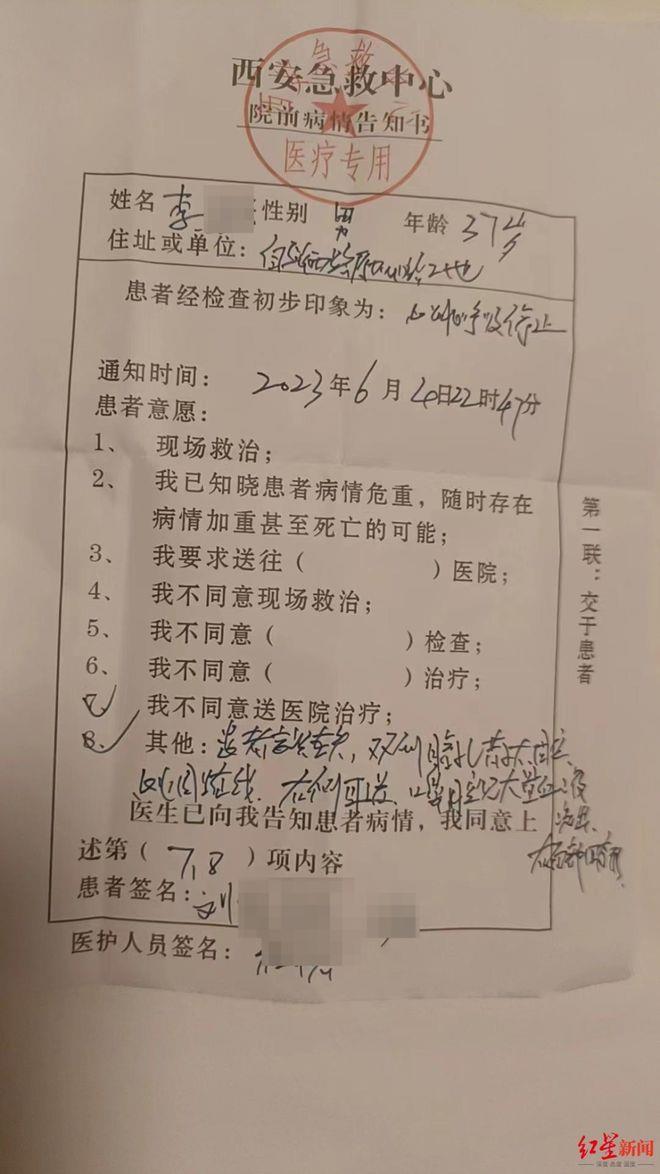 西安急救中心
院前病情告知书
医疗专用
姓名 李 性别 男 年龄 37岁
住址或单位：
患者经检查初步印象为： 心跳呼吸停止
通知时间： 2023年6月4日22时47分
患者意愿：
1、 现场救治；
2、 我已知晓患者病情危重，随时存在
病情加重甚至死亡的可能；
3、 我要求送往（ ）医院；
4、 我不同意现场救治；
5、 我不同意（ ）检查；
6、 我不同意（ ）治疗；
7、 我不同意送医院治疗；
8、 其他：患者意识丧失，双侧瞳孔散大固定
心电图直线、右侧耳道、口鼻腔见大量血液
医生已向我告知患者病情，我同意上
述第（ 7，8 ）项内容
患者签名：刘
医护人员签名：
第一联：交于患者
红星新闻
深度 态度 温度